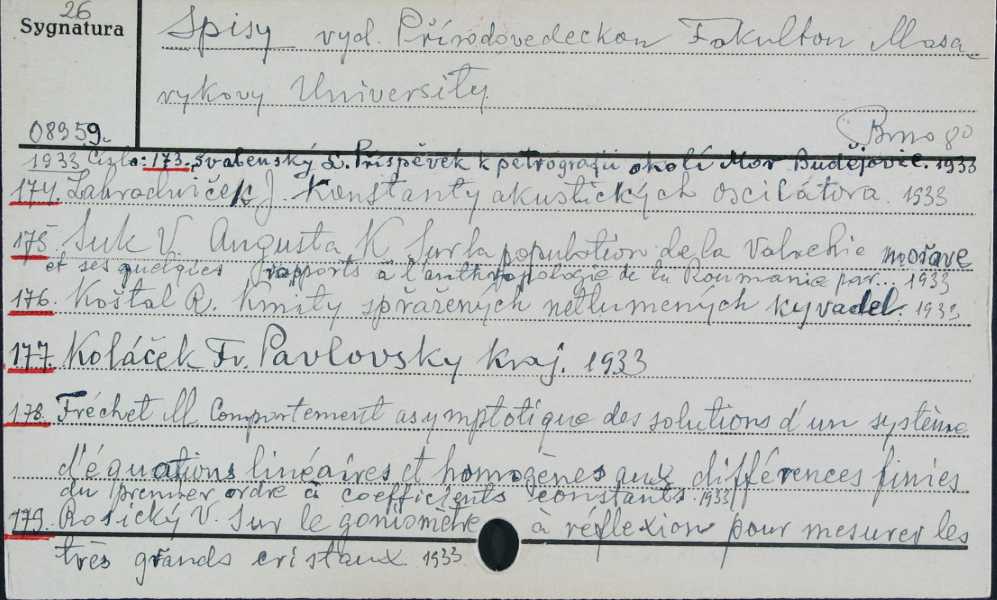 26
Sygnatura
Spisy vyd. Přírodovedeckou Fakultou Masa-
rykovy University.
08959.
Brno 80
1933 Čízla: 173. Svabenský L. Příspěvek k petrografii okolí Mor Budějovic. 1933
174. Zahradníček J. Konstanty akustických oscilátora. 1933
175 Suk V. Augusta K. Sur la population de la Valachie morave
et ses quelgies rapports a l'anthropologie de la Roumanie par... 1933
176. Koštal R. Kmity spřažených netlumených kyvadel. 1933
177. Koláček Fr. Pavlovsky kraj. 1933
178. Fréchet M Comportement asymptotique des solutions d'un système
d'équations linéaires et homogènes aux différences finies
du premier ordre à coefficients constants. 1933
179. Rosický V. Sur le goniomètre à réflexion pour mesurer les
très grands cristaux 1933